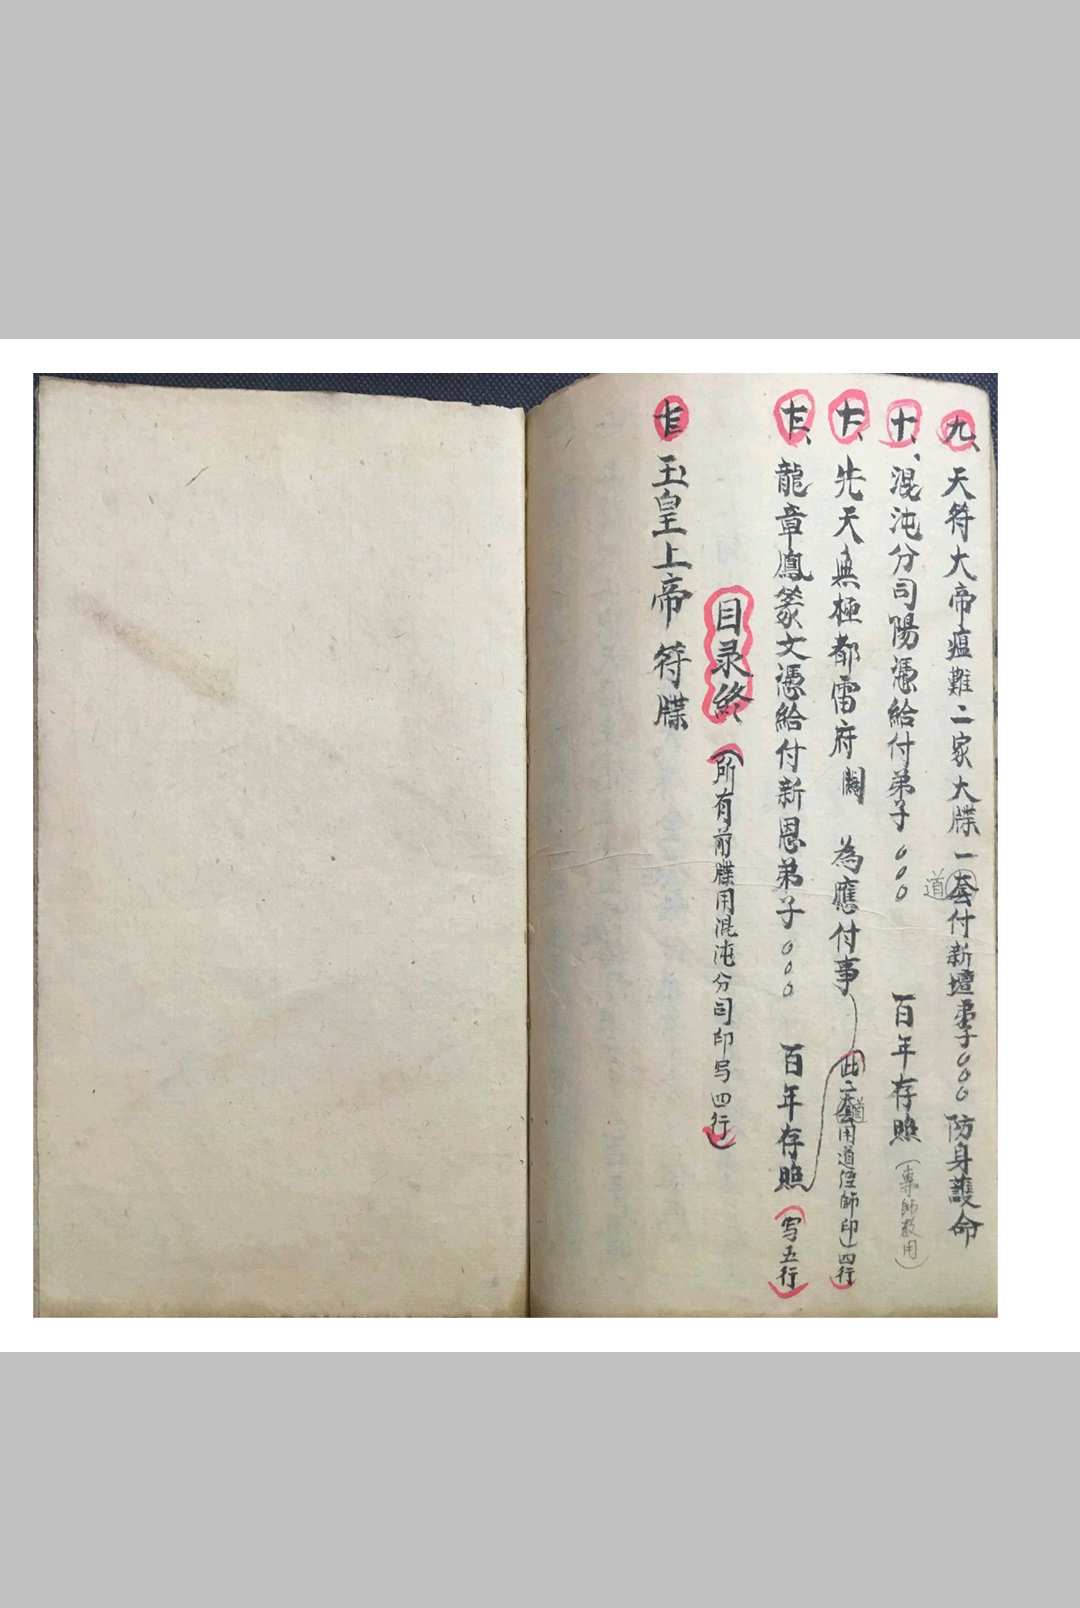 九、天符大帝瘟難二家大牒一套付新壇弟子〇〇〇防身護命
道
十、混沌分司陽憑給付弟子〇〇〇 百年存照（專師教用）
十一、先天無極都雷府 為應付事（此二套用道經師印）四行
道
十二、龍章鳳篆文憑給付新恩弟子〇〇〇 百年存照（写五行）
目录終（所有前牒用混沌分司印写四行）
十三 玉皇上帝 符牒